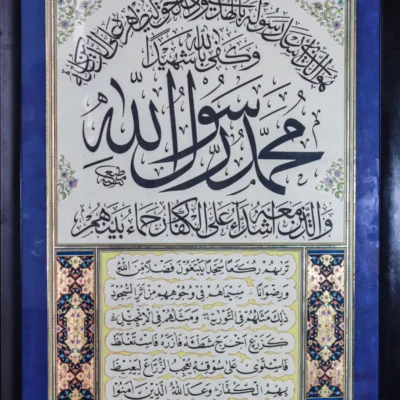 هو الذي أرسل رسوله بالهدى ودين الحق ليظهره على الدين كله
وَكَفَىٰ بِاللَّهِ شَهِيدًا
مُحَمَّدٌ رَّسُولُ اللَّهِ
وَالَّذِينَ مَعَهُ أَشِدَّاءُ عَلَى الْكُفَّارِ رُحَمَاءُ بَيْنَهُمْ
تَرَىٰهُمْ رُكَّعًا سُجَّدًا يَبْتَغُونَ فَضْلًا مِنَ اللَّهِ
وَرِضْوَانًا سِيمَاهُمْ فِي وُجُوهِهِمْ مِنْ أَثَرِ السُّجُودِ
ذَٰلِكَ مَثَلُهُمْ فِي التَّوْرَيٰةِ وَمَثَلُهُمْ فِي الْإِنْجِيلِ
كَزَرْعٍ أَخْرَجَ شَطْـَٔهُ فَآزَرَهُ فَاسْتَغْلَظَ
فَاسْتَوَىٰ عَلَىٰ سُوقِهِ يُعْجِبُ الزُّرَّاعَ لِيَغِيظَ
بِهِمُ الْكُفَّارَ وَعَدَ اللَّهُ الَّذِينَ آمَنُوا